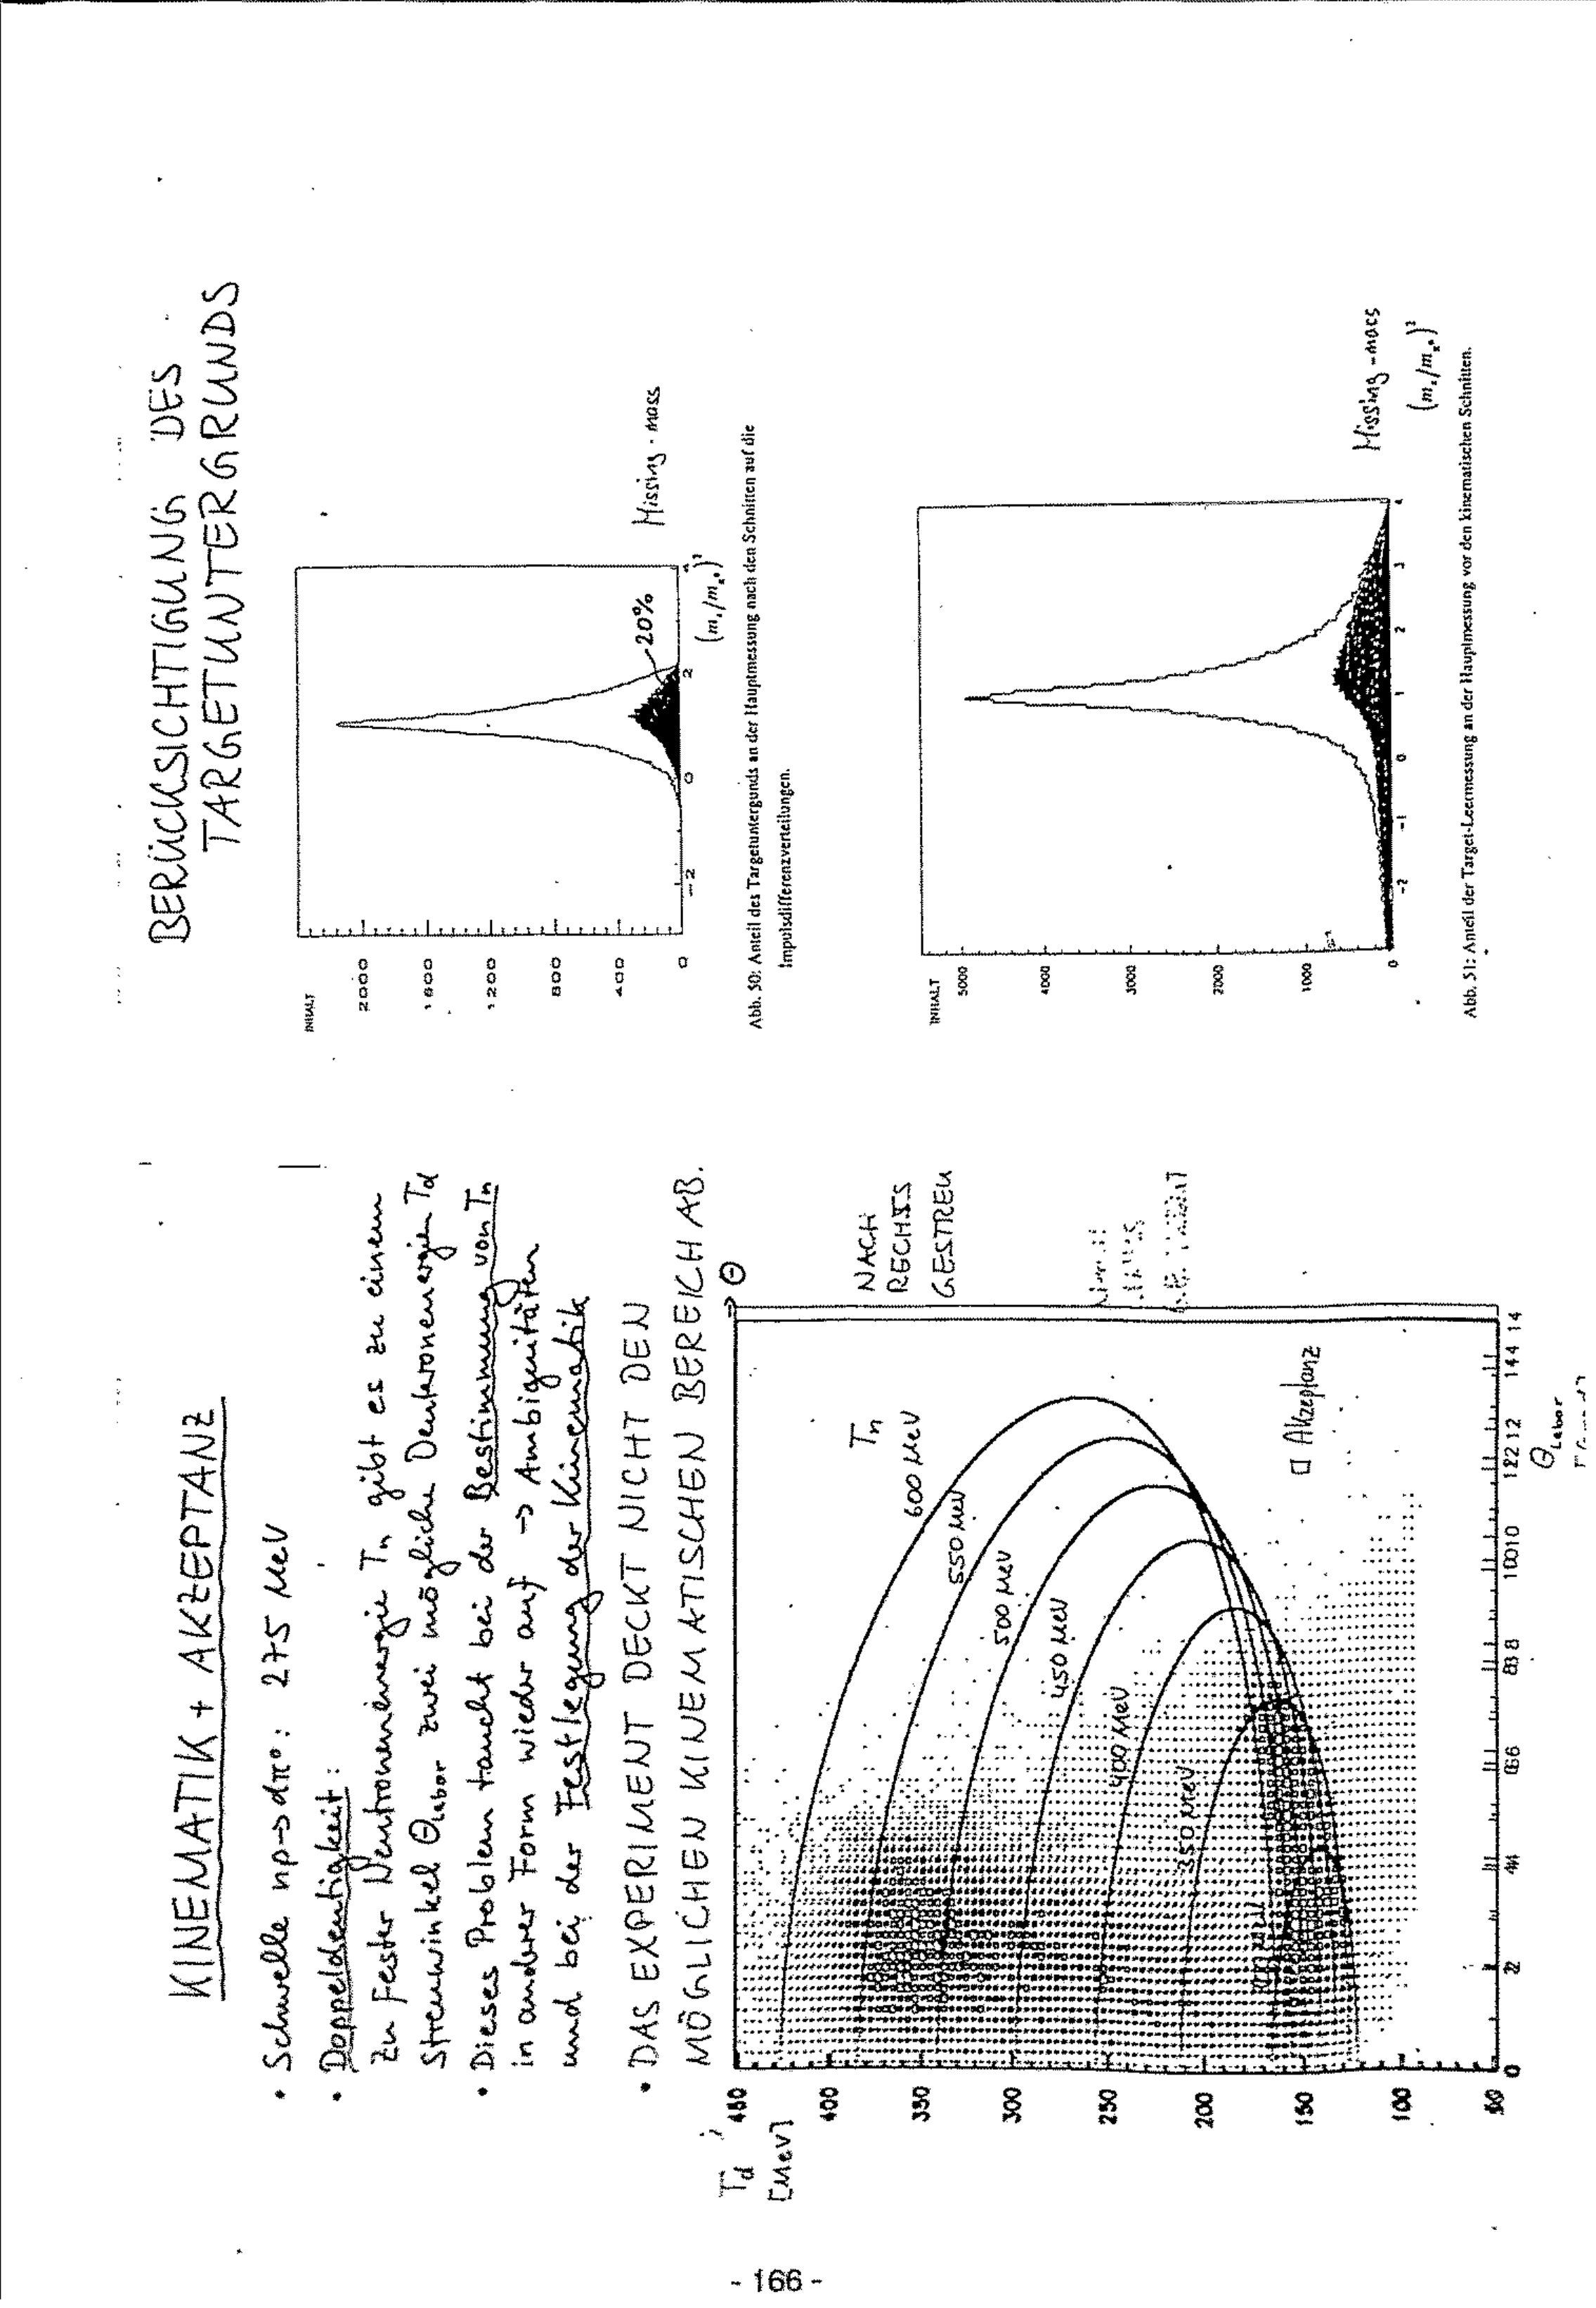 KINEMATIK + AKZEPTANZ
• Schwelle np→dπ°: 275 MeV
• Doppeldeutigkeit:
Zu fester Neutronenenergie Tn gibt es zu einem
Streuwinkel ΘLabor zwei mögliche Deuteronenergien Td
• Dieses Problem taucht bei der Bestimmung von Tn
in anderer Form wieder auf → Ambiguitäten
und bei der Festlegung der Kinematik
• DAS EXPERIMENT DECKT NICHT DEN
MÖGLICHEN KINEMATISCHEN BEREICH AB.
→ Θ
Td
[MeV]
450
400
350
300
250
200
150
100
50
Tn
600 MeV
550 MeV
500 MeV
450 MeV
400 MeV
350 MeV
□ Akzeptanz
NACH
RECHTS
GESTREU
0 2 44 66 88 1010 1212 144 14
ΘLabor
BERÜCKSICHTIGUNG DES
TARGETUNTERGRUNDS
INHALT
2000
1600
1200
800
400
0
-2 0 2 4
20%
Missing-mass
(mx/mπ°)²
Abb. 50: Anteil des Targetuntergunds an der Hauptmessung nach den Schnitten auf die
Impulsdifferenzverteilungen.
INHALT
5000
4000
3000
2000
1000
0
-2 -1 0 1 2 3 4
Missing-mass
(mx/mπ°)²
Abb. 51: Anteil der Target-Leermessung an der Hauptmessung vor den kinematischen Schnitten.
- 166 -